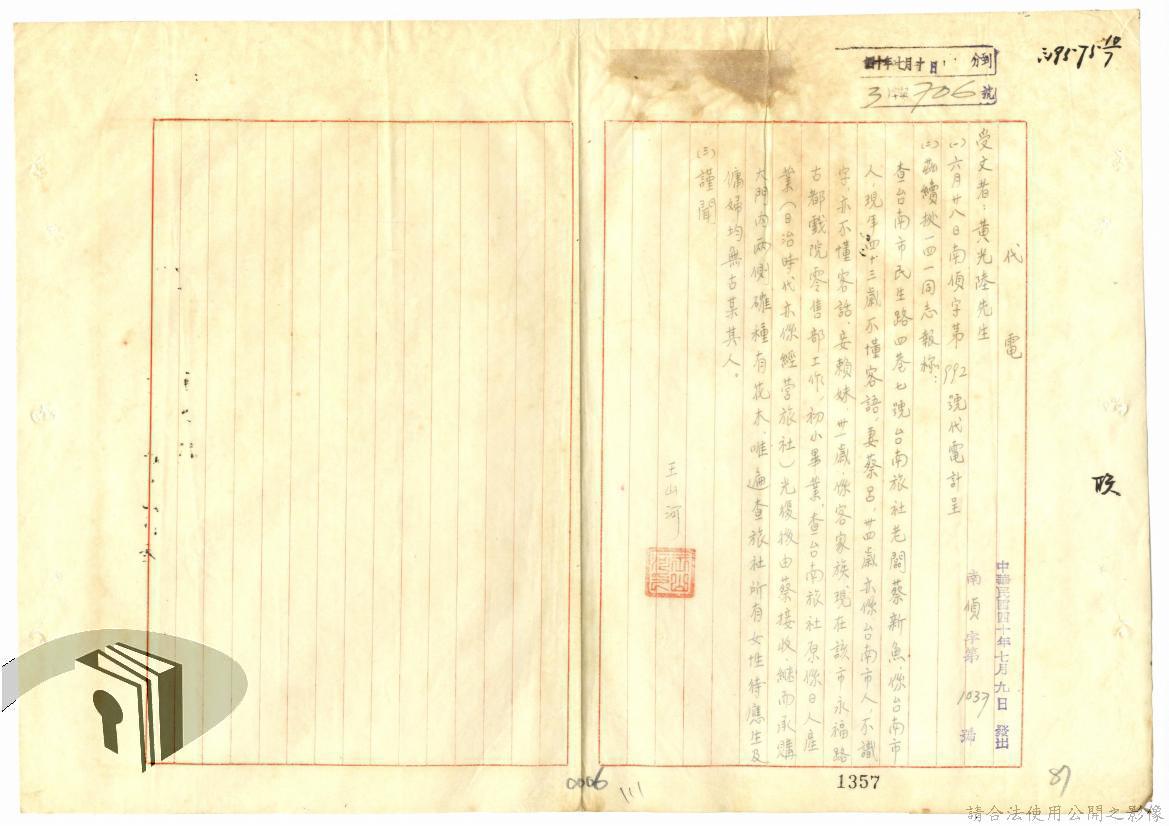 代電
中華民國四十年七月九日發出
南偵字第1037號
受文者：黃光陸先生
(一)六月廿八日南偵字第992號代電計呈
(二)茲續挾一四一同志報稱：
查台南市民生路四巷七號台南旅社老闆蔡新魚，係台南市
人，現年四十三歲不懂客語，妻蔡呂，卅四歲亦係台南市人，不識
字，亦不懂客話，妾賴妹，卅一歲，係客家族，現在該市永福路
古都戲院零售部工作，初小畢業，查台南旅社原係日人產
業（日治時代亦係經營旅社）光復後由蔡接收，繼而承購
大門內兩側確種有花木，唯遍查旅社所有女性待應生及
傭婦均無古某其人。
(三)謹聞
王山河
四十年七月十日 分到
706號
1357
0006
111
87
請合法使用公開之影像